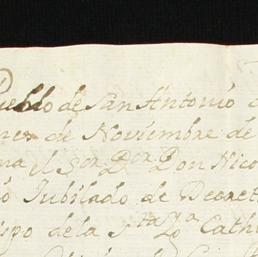 Pueblo de San Antonio
de Noviembre de
el Sor Dor Don Nico
Jubilado de Decret
ispo de la Sta Ya Cath